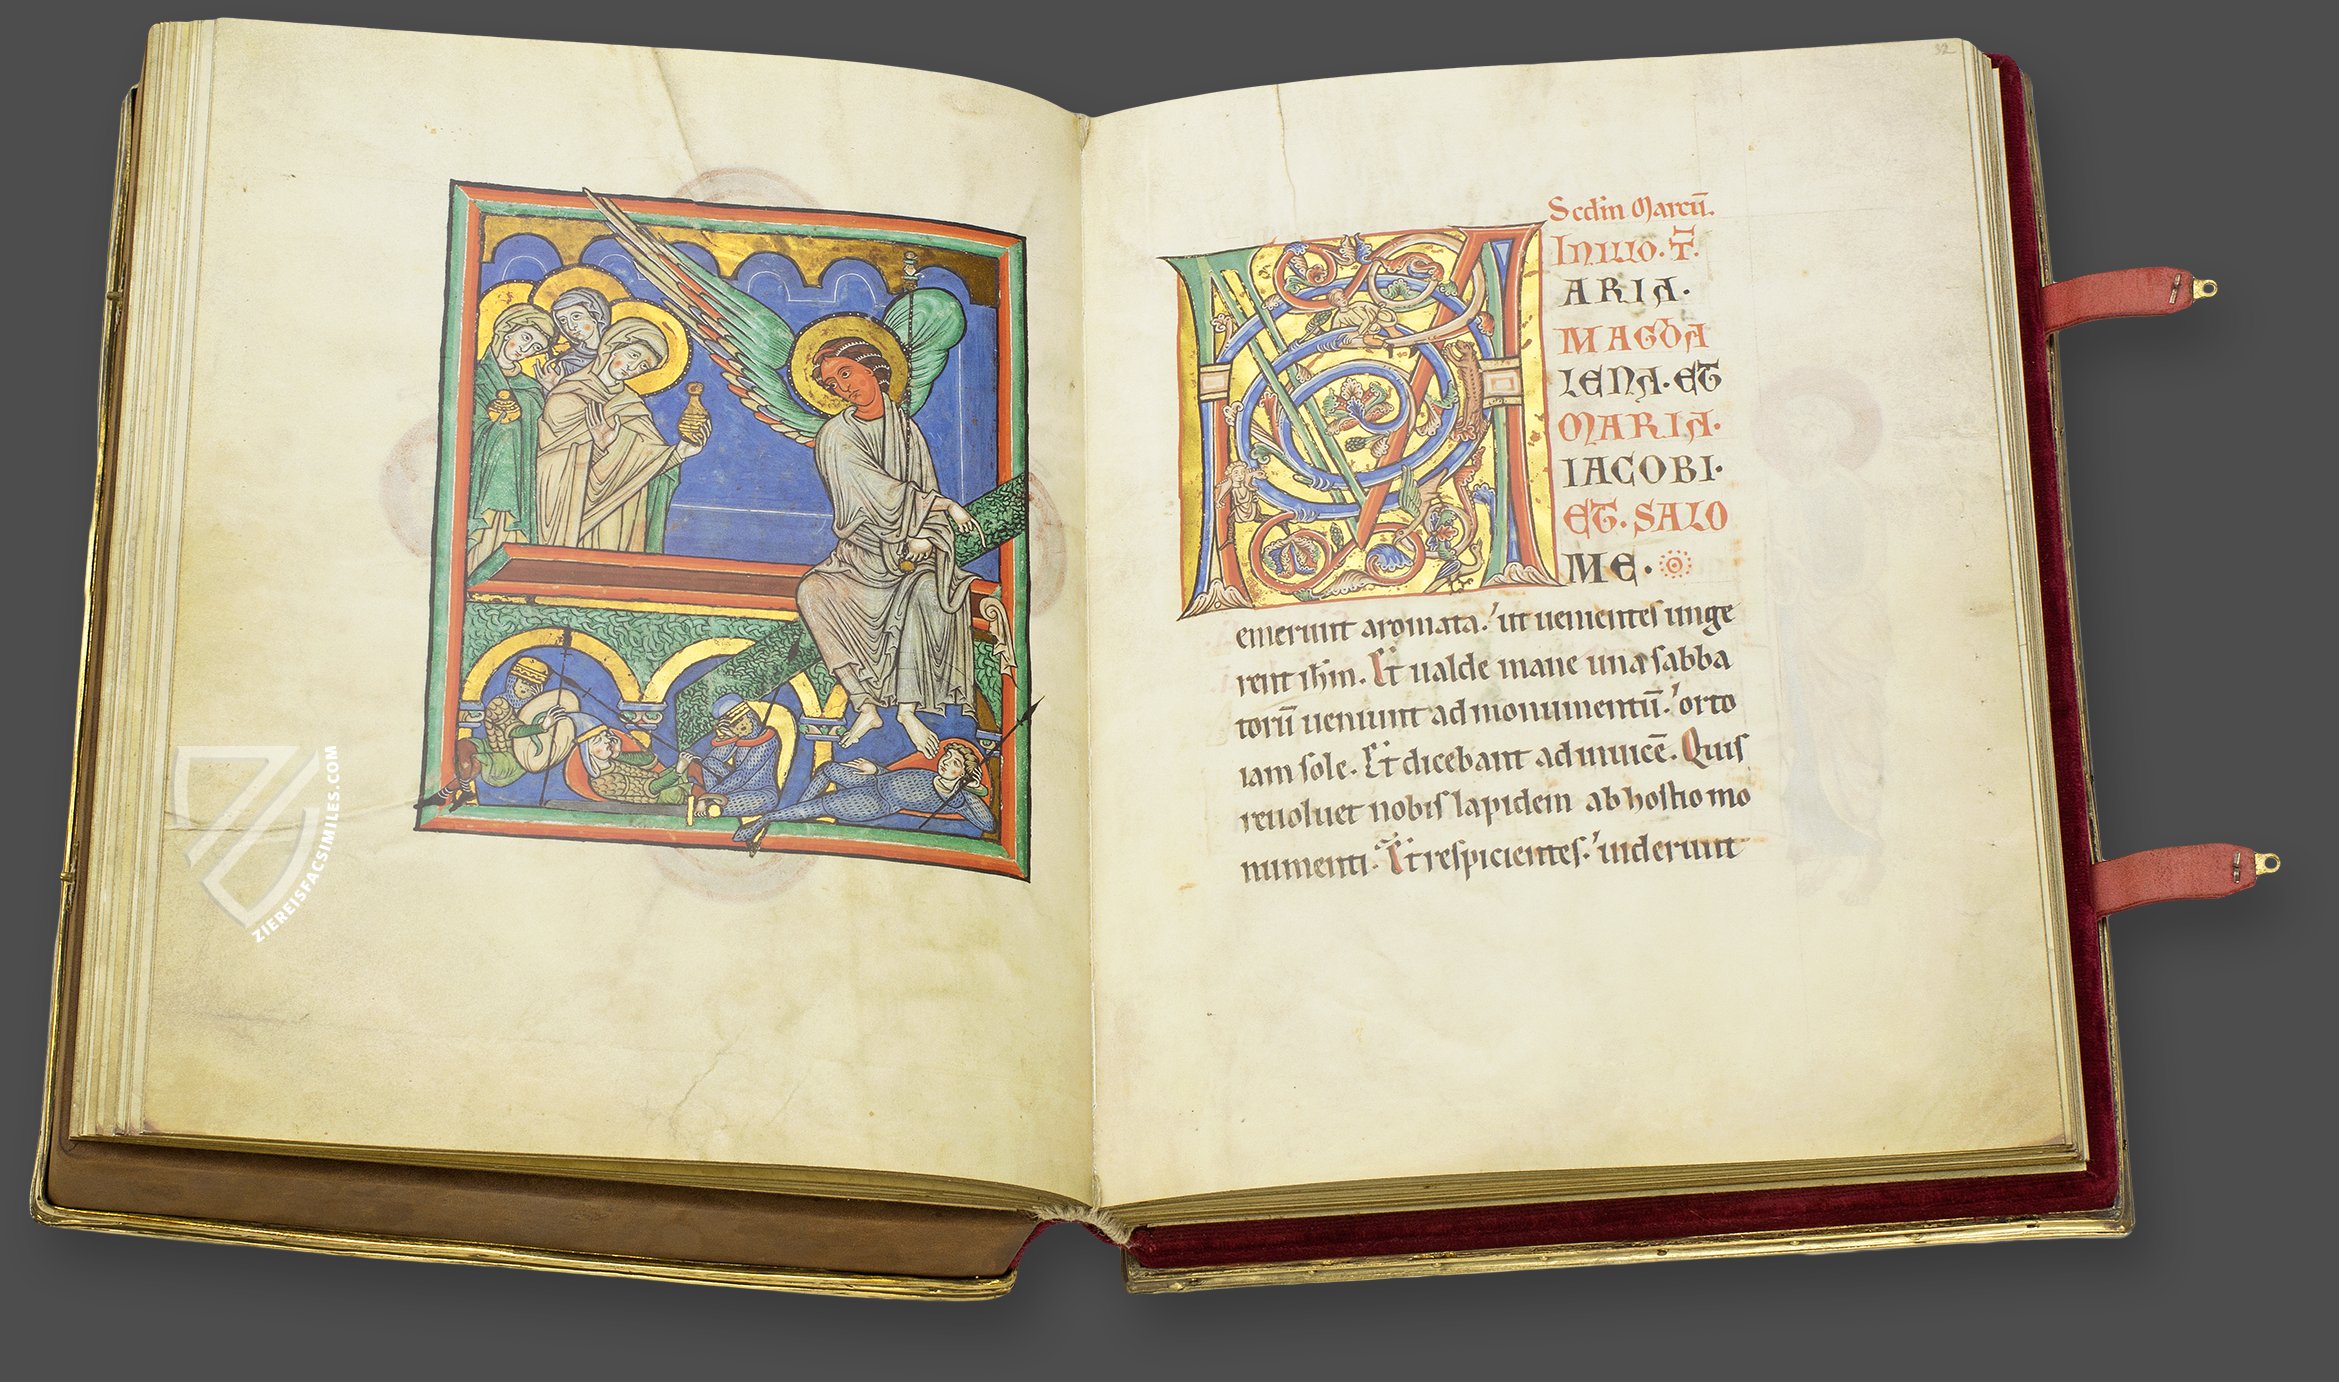 ZIEREISFACSIMILES.COM
32
Scd̄in Marcū.
In illo. T̄.
M
ARIA.
MAGDA
LENA. ET
MARIA.
IACOBI.
ET. SALO
ME.
emerunt aromata. ut uenientes unge
rent ihm. Et ualde mane una sabba
torū ueniunt ad monumentū. orto
iam sole. Et dicebant ad inuicē. Quis
reuoluet nobis lapidem ab hostio mo
numenti. Et respicientes. uiderunt